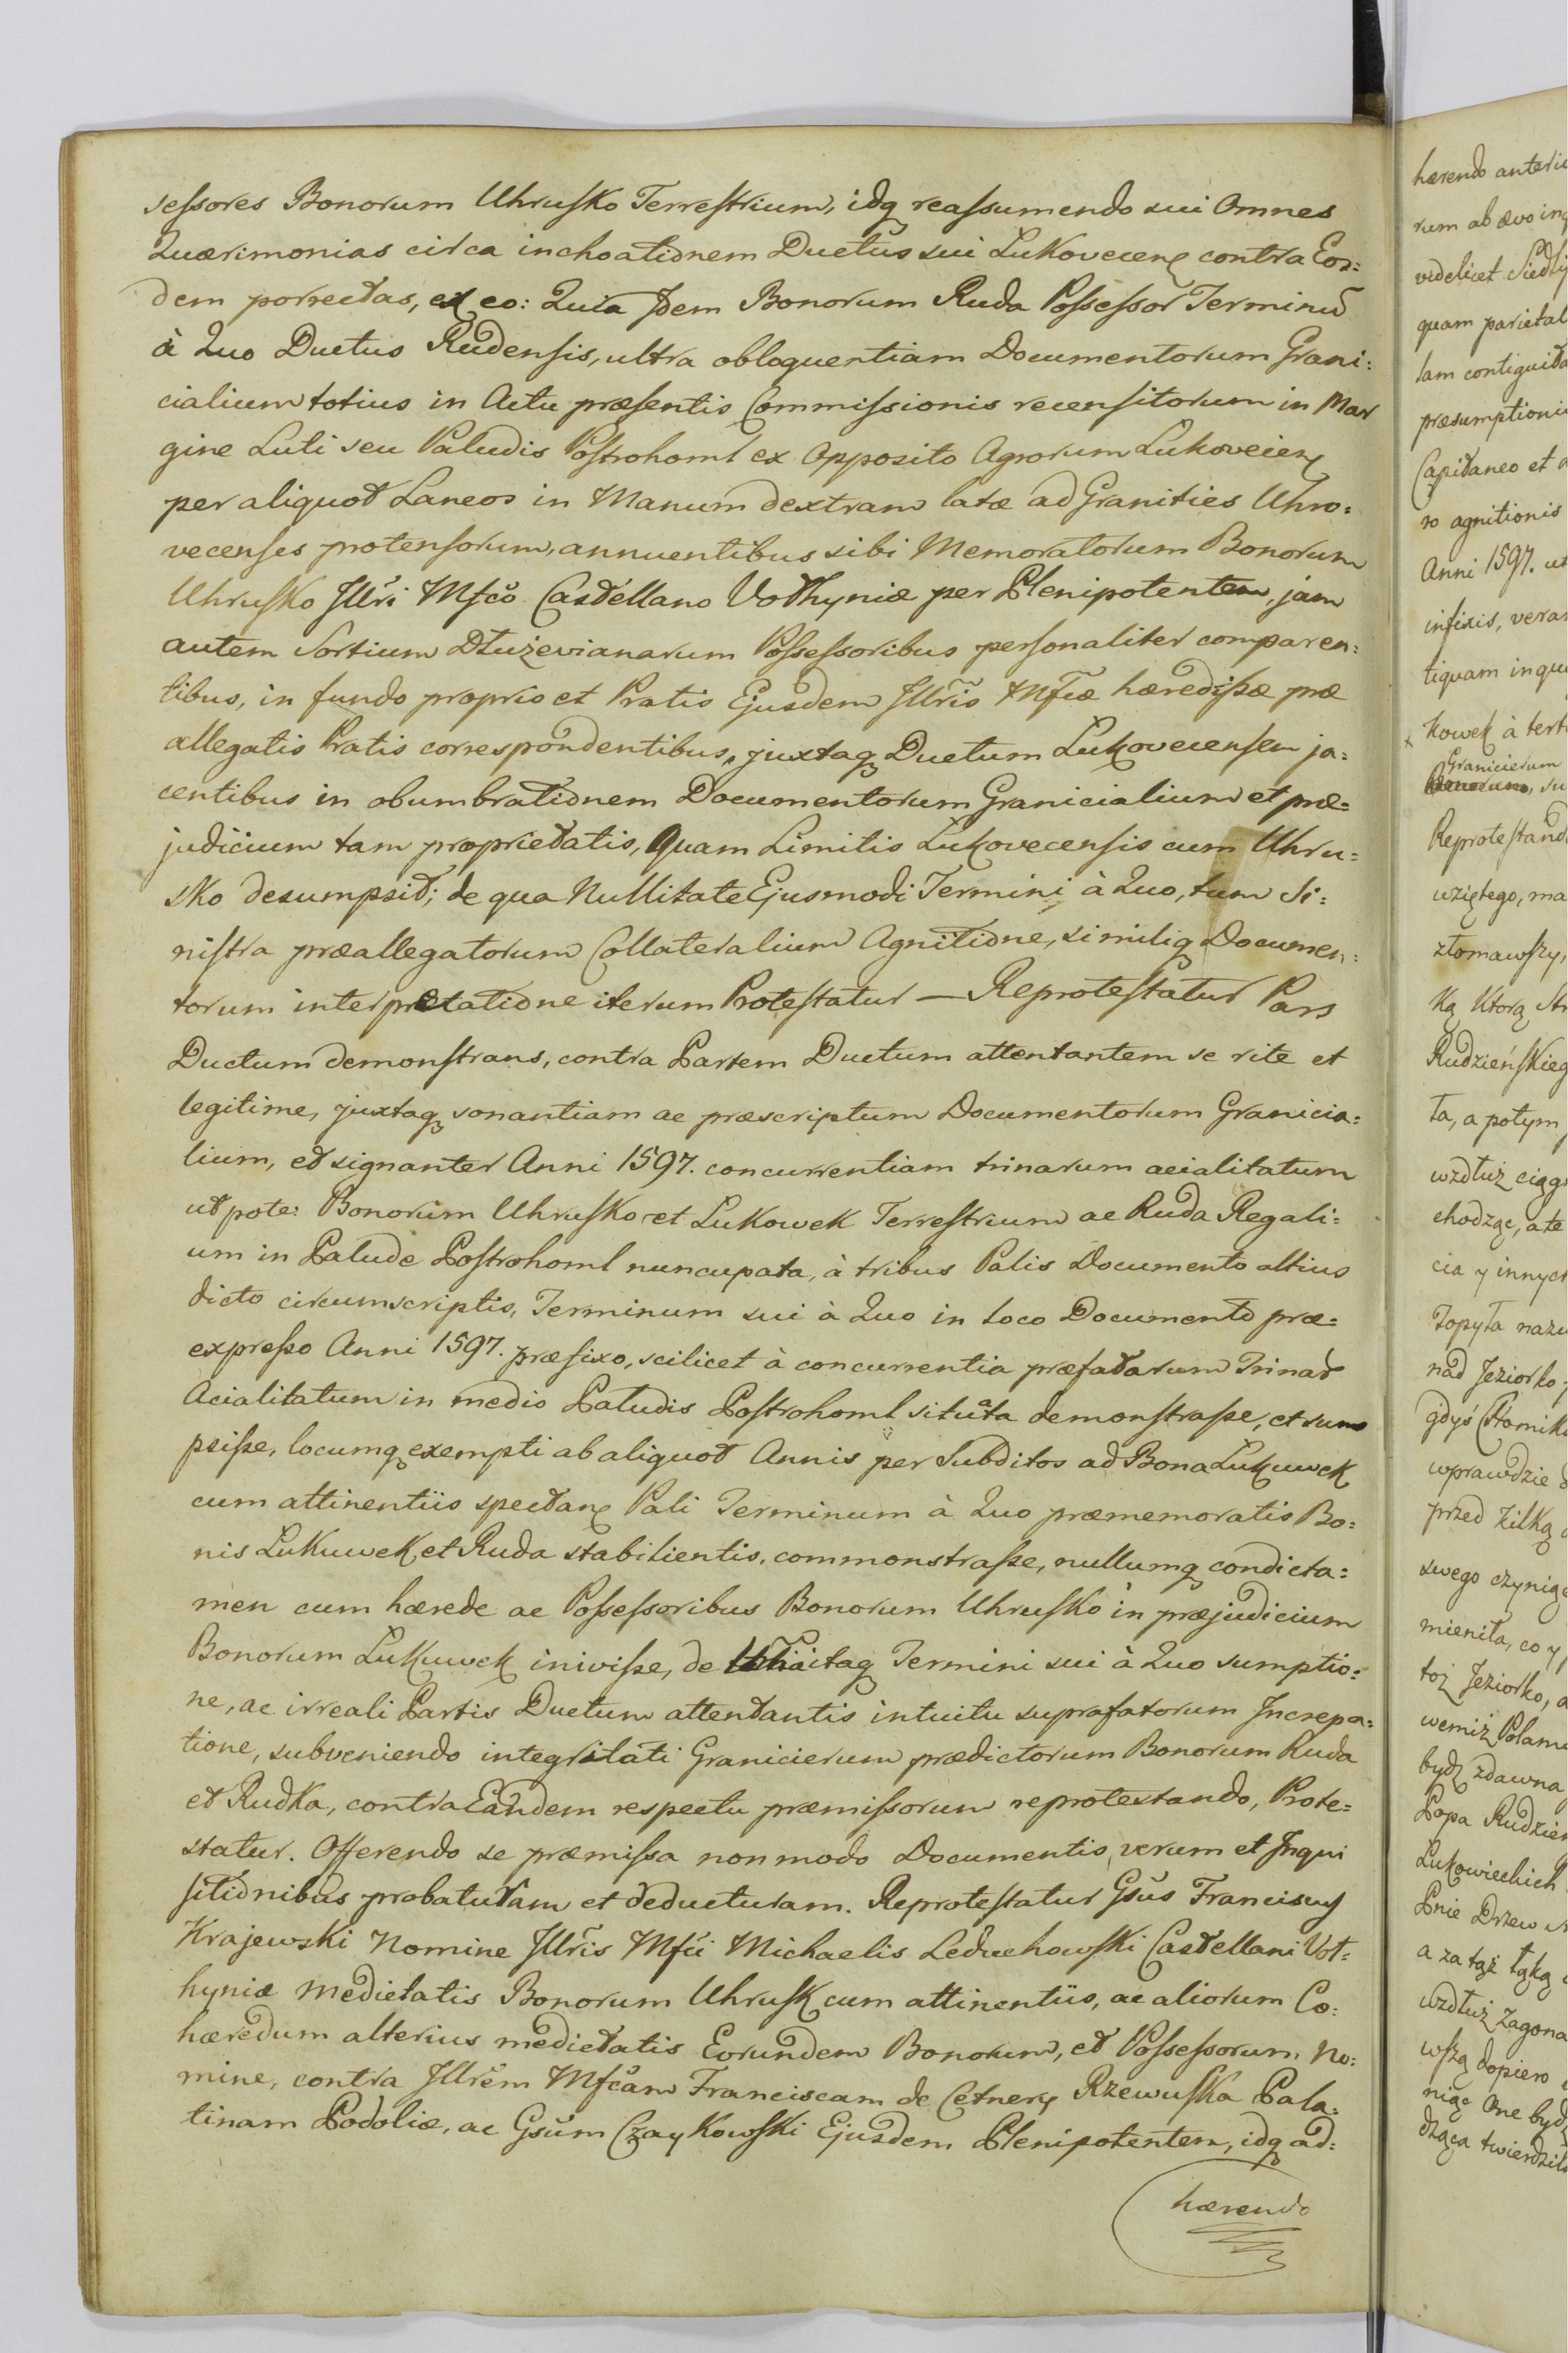 sessores Bonorum Uhrusko Terrestrium, idq reassumendo sui Omnes
Quærimonias circa inchoationem Ductus sui Lukovecen contra Eos=
dem porrectas, ex eo: Quia Idem Bonorum Ruda Possessor Terminū
à Quo Ductus Rudensis, ultra obloquentiam Documentorum Grani=
cialium totius in Actu præsentis Commissionis recensitorum in Mar
gine Luti seu Paludis Postrohoml ex Opposito Agrorum Lukovecien
per aliquot Laneos in Manum dextram latæ ad Granities Uhro=
vecenses protensorum, annuentibus sibi Memoratorum Bonorum
Uhrusko Jllri Mfco Castellano Volhyniæ per Plenipotentem, jam
autem Sortium Dłużevianarum Possessoribus personaliter comparen=
tibus, in fundo proprio et Pratis Ejusdem Jllris Mfcæ hæredissæ præ
allegatis Pratis correspondentibus, juxtaq Ductum Lukovecensem ja=
centibus in obumbrationem Documentorum Granicialium et præ=
judicium tam proprietatis, Quam Limitis Lukovecensis cum Uhru=
sko desumpsit; de qua Nullitate Ejusmodi Termini à Quo, tum Si=
nistra præallegatorum Collateralium Agnitione, similiq Documen=
torum interpretatione iterum Protestatur — Reprotestatur Pars
Ductum demonstrans, contra Partem Ductum attentantem se rite et
legitime, juxtaq sonantiam ac præscriptum Documentorum Granicia=
lium, et signanter Anni 1597. concurrentiam trinarum acialitatum
utpote: Bonorum Uhrusko et Lukowek Terrestrium ac Ruda Regali=
um in Palude Postrohoml nuncupata, à tribus Palis Documento altius
dicto circumscriptis, Terminum sui à Quo in loco Documento præ=
expresso Anni 1597. præfixo, scilicet à concurrentia præfatarum Trinar
Acialitatum in medio Paludis Postrohoml situata demonstrasse, et sum
psisse, locumq exempti ab aliquot Annis per Subditos ad Bona Lukuwek
cum attinentiis spectan Pali Terminum à Quo præmemoratis Bo=
nis Lukuwek et Ruda stabilientis, commonstrasse, nullumq condicta=
men cum hærede ac Possessoribus Bonorum Uhrusko in præjudicium
Bonorum Lukuwek inivisse, de itaq Termini sui à Quo sumptio=
ne, ac irreali Partis Ductum attentantis intuitu suprafatorum Increpa=
tione, subveniendo integritati Granicierum prædictorum Bonorum Ruda
et Rudka, contra Eandem respectu præmissorum reprotestando, Prote=
statur. Offerendo se præmissa non modo Documentis, verum et Inqui
sitionibus probaturam et deducturam. Reprotestatur Gsus Franciscus
Krajewski Nomine Jllris Mfci Michaelis Leduchowski Castellani Vol=
hyniæ Medietatis Bonorum Uhrusk cum attinentiis, ac aliorum Co=
hæredum alterius medietatis Eorundem Bonorum, et Possessorum, No=
mine, contra Jllrem Mfcam Franciscam de Cetnery Rzewuska Pala=
tinam Podoliæ, ac Gsum Czaykowski Ejusdem Plenipotentem, idq ad=
hærendo
hærendo
rum ab ævo
videlicet
quam
tam
Capitaneo et
ro agnitionis
Anni 1597.
infixis,
tiquam
kowek à
Granicierum
wziętego,
złomawszy,
ką którą
ta, a potym
wzdłuż
chodząc, a te
cia y innych
Topyła
nad Jeziorko
gdyś
wprawdzie
przed żilką
swego
mieniła, co y
toż Jeziorko,
bydź zdawna
Popa
Lukowieckich
Pnie Drzew
a za tąż łąką
wzdłuż
wszą dopiero
niąc One
dząca